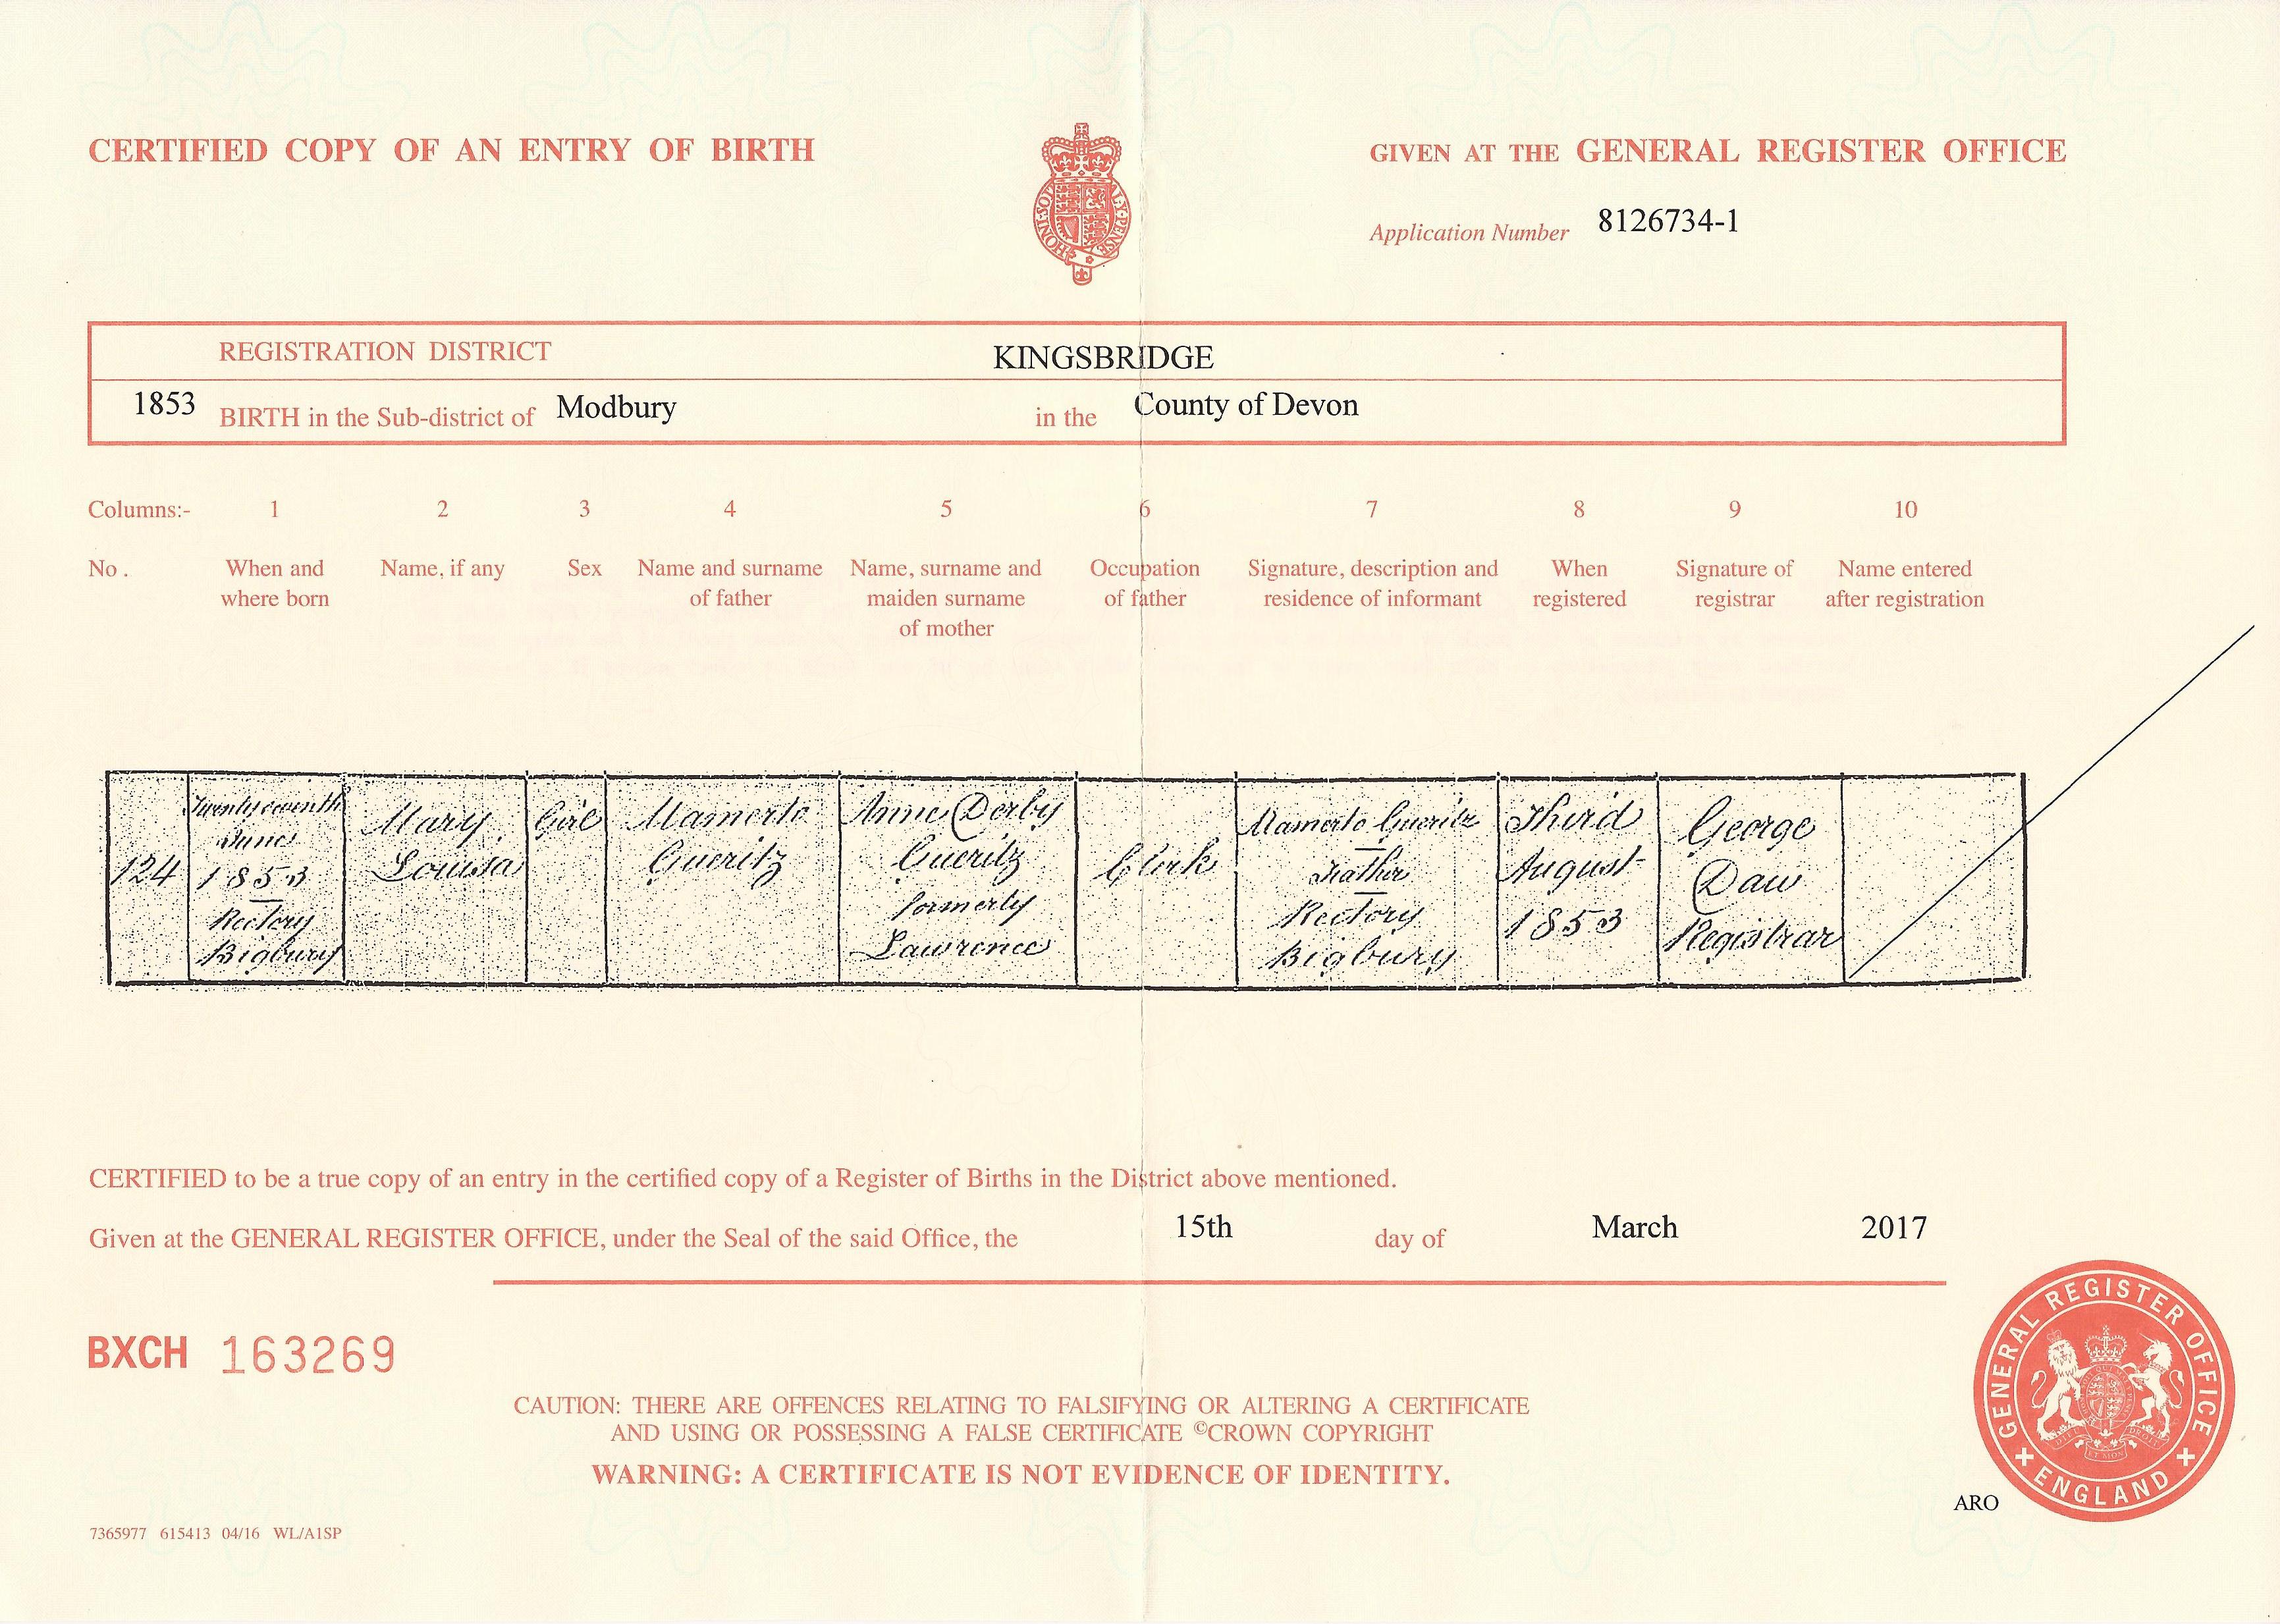 CERTIFIED COPY OF AN ENTRY OF BIRTH
GIVEN AT THE GENERAL REGISTER OFFICE
Application Number 8126734-1
HONI·SOIT
Y·PENSE
REGISTRATION DISTRICT KINGSBRIDGE
1853 BIRTH in the Sub-district of Modbury in the County of Devon
Columns:- 1 2 3 4 5 6 7 8 9 10
No . When and Name, if any Sex Name and surname Name, surname and Occupation Signature, description and When Signature of Name entered
where born of father maiden surname of father residence of informant registered registrar after registration
of mother
124
Twenty seventh
June
1853
Rectory
Bigbury
Mary
Louisa
Girl
Mamerto
Gueritz
Anne Derby
Gueritz
formerly
Lawrence
Clerk
Mamerto Gueritz
Father
Rectory
Bigbury
Third
August
1853
George
Daw
Registrar
CERTIFIED to be a true copy of an entry in the certified copy of a Register of Births in the District above mentioned.
Given at the GENERAL REGISTER OFFICE, under the Seal of the said Office, the 15th day of March 2017
BXCH 163269
CAUTION: THERE ARE OFFENCES RELATING TO FALSIFYING OR ALTERING A CERTIFICATE
AND USING OR POSSESSING A FALSE CERTIFICATE ©CROWN COPYRIGHT
WARNING: A CERTIFICATE IS NOT EVIDENCE OF IDENTITY.
GENERAL REGISTER OFFICE
ENGLAND
ARO
7365977 615413 04/16 WL/A1SP